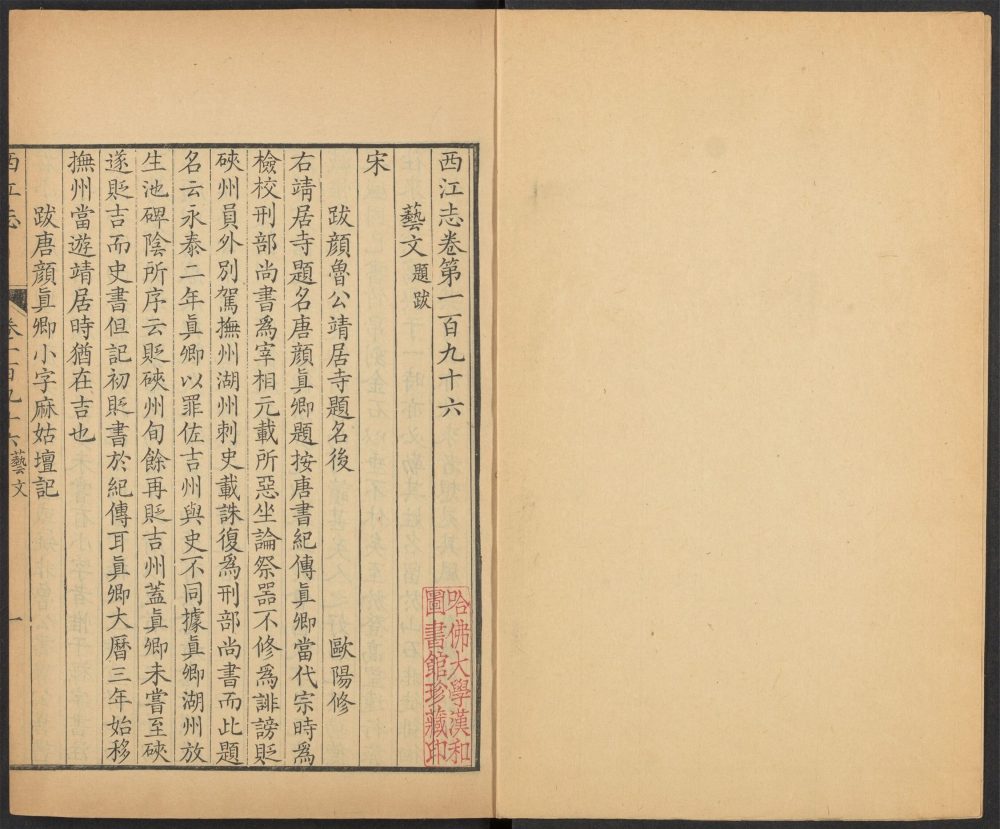 西江志卷第一百九十六
藝文題跋
宋
跋顔魯公靖居寺題名後 歐陽修
右靖居寺題名唐顔眞卿題按唐書紀傳眞卿當代宗時爲
檢校刑部尚書爲宰相元載所惡坐論祭器不修爲誹謗貶
硤州員外別駕撫州湖州刺史載誅復爲刑部尚書而此題
名云永泰二年眞卿以罪佐吉州與史不同據眞卿湖州放
生池碑陰所序云貶硤州旬餘再貶吉州蓋眞卿未嘗至硤
遂貶吉而史書但記初貶書於紀傳耳眞卿大曆三年始移
撫州當遊靖居時猶在吉也
跋唐顔眞卿小字麻姑壇記
西江志 卷一百九十六藝文 一
哈佛大學漢和
圖書館珍藏印